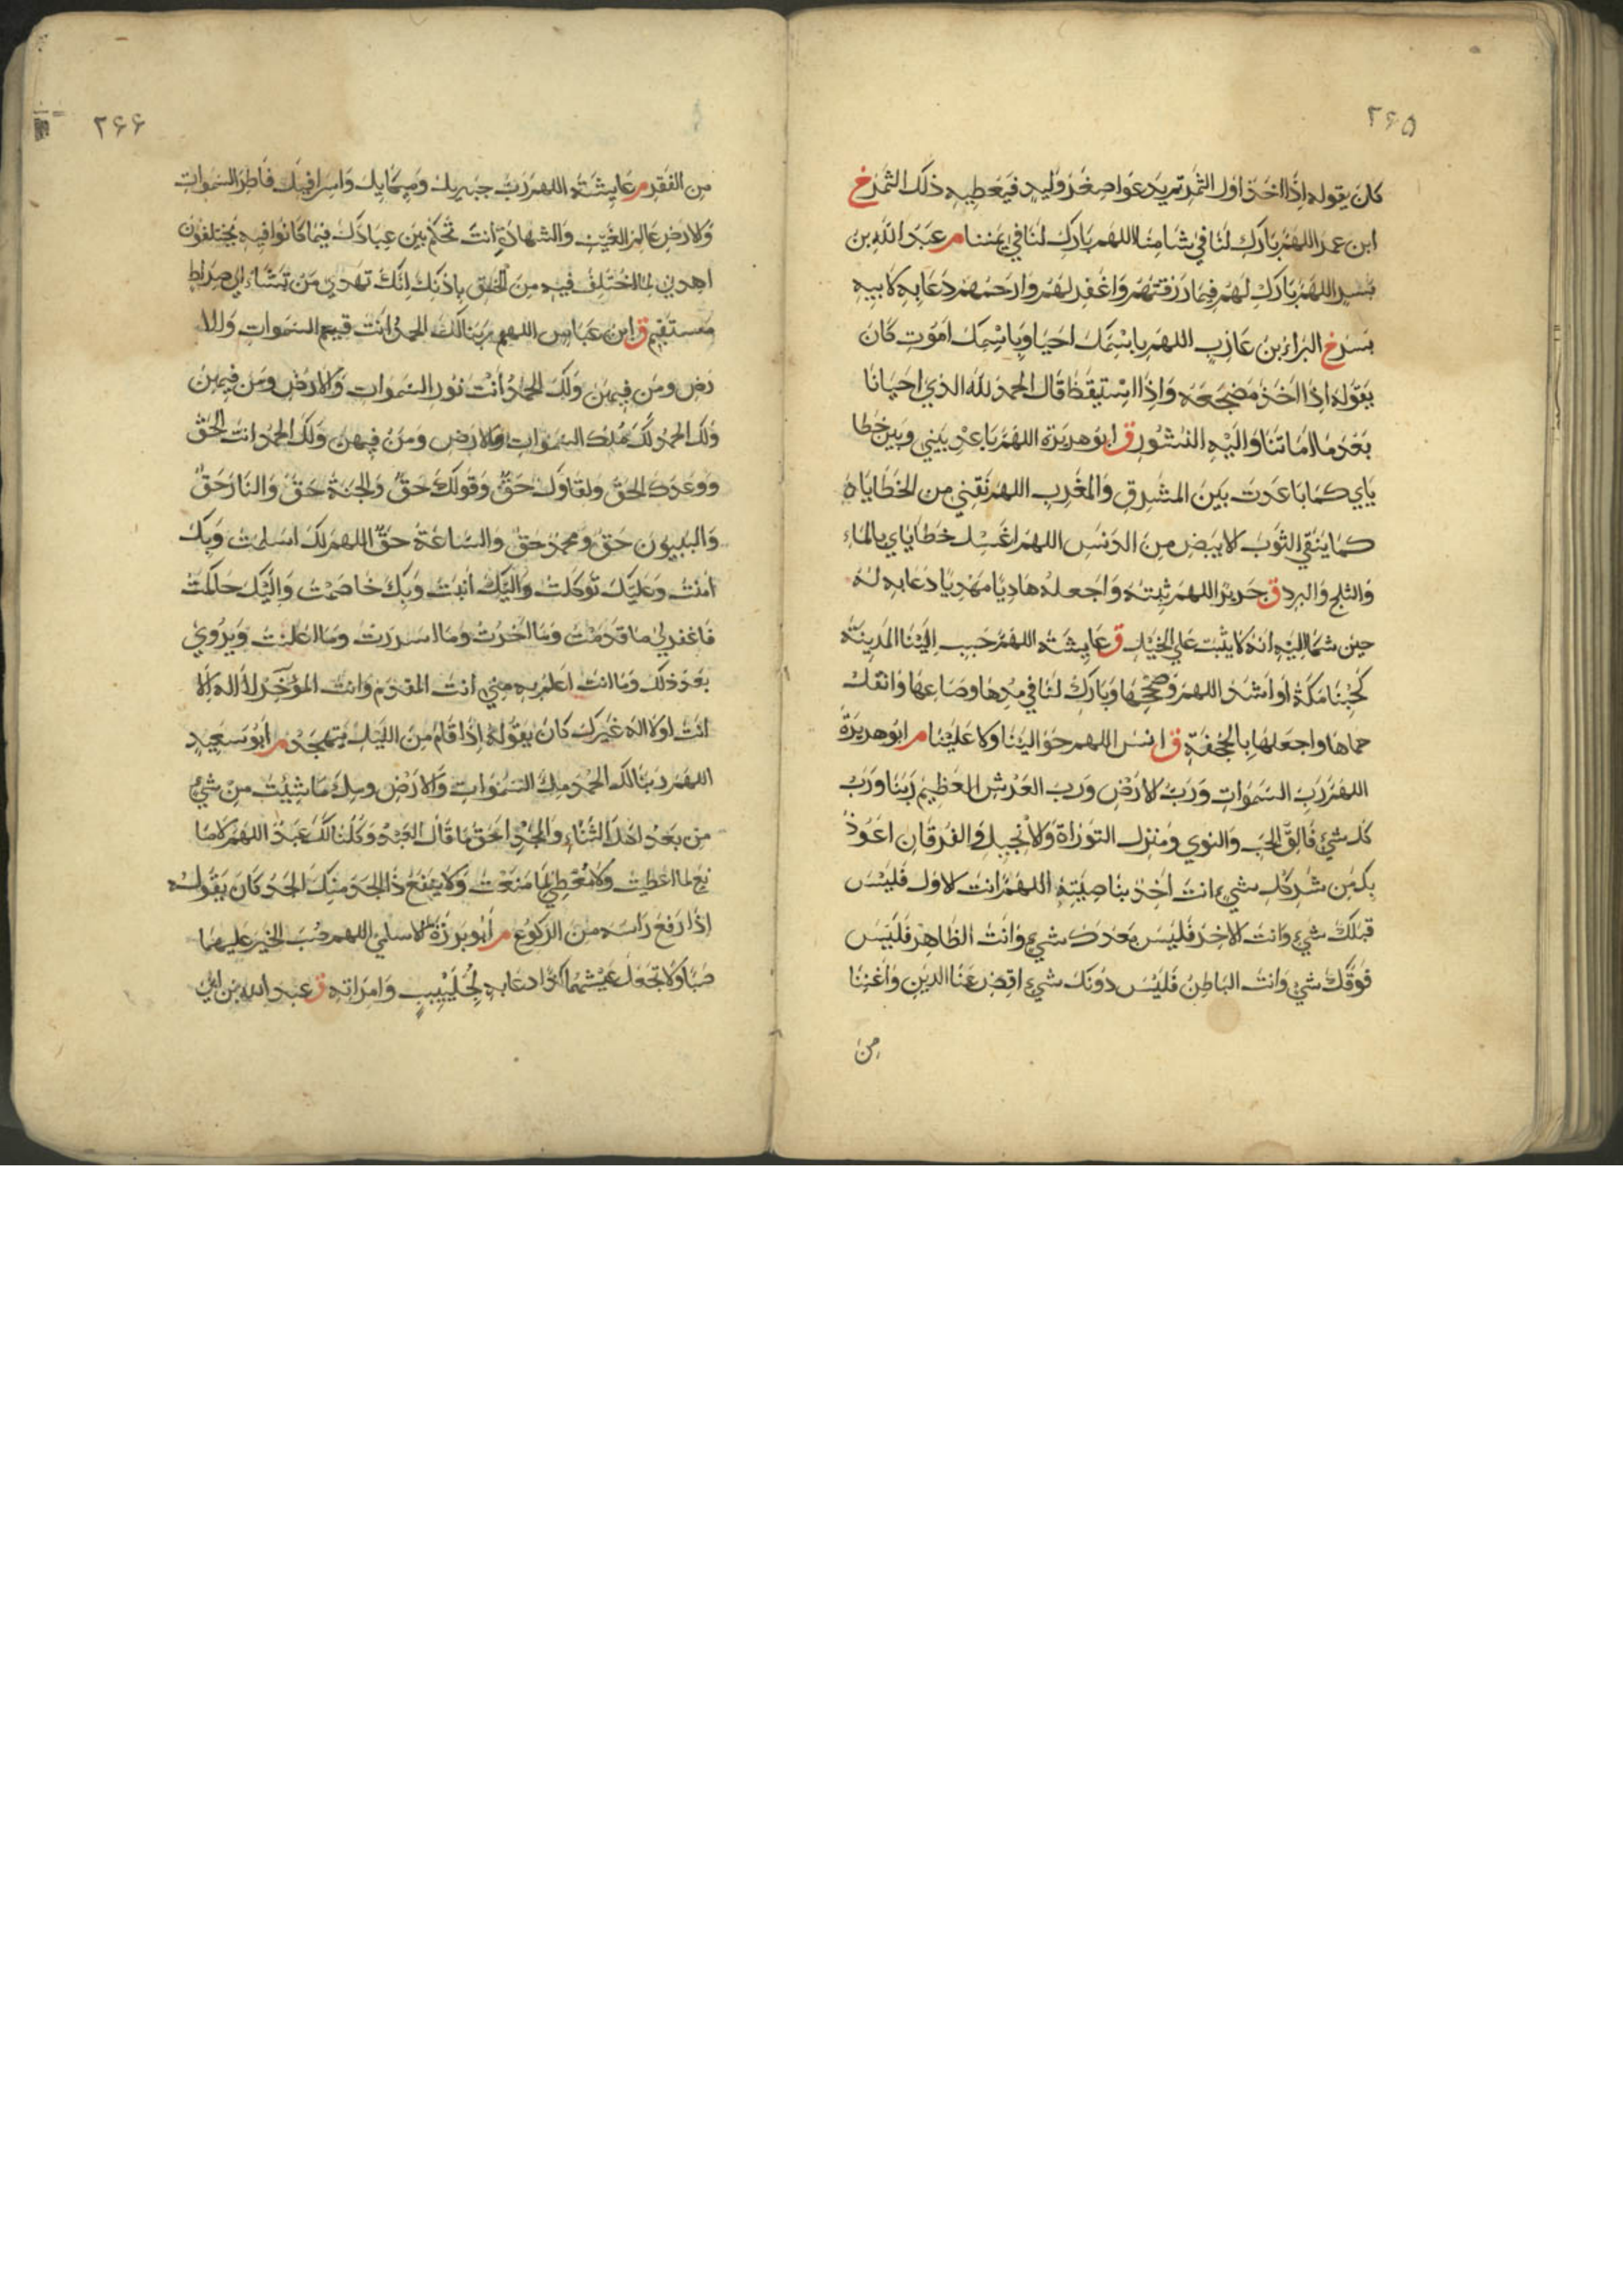 ۲۶۵
كان يقوله اذا اخذ اول الثمر ثم يدعوا صغر وليد فيعطيه ذلك الثمر خ
ابن عمر اللهم بارك لنا في شامنا اللهم بارك لنا في يمننا م عبد الله بن
بسر اللهم بارك لهم فيما رزقتهم واغفر لهم وارحمهم دعا به لابيه
بسر خ البراء بن عازب اللهم باسمك احيا وباسمك اموت كان
يقوله اذا اخذ مضجعه واذا استيقظ قال الحمد لله الذي احيانا
بعد ما اماتنا واليه النشور ق ابو هريرة اللهم باعد بيني وبين خطا
ياي كما باعدت بين المشرق والمغرب اللهم نقني من الخطايا
كما ينقي الثوب لابيض من الدنس اللهم اغسل خطاياي بالماء
والثلج والبرد ق جرير اللهم ثبته واجعله هاديا مهديا دعا به له
حين شكا اليه انه لا يثبت علي الخيل ق عايشة اللهم حبب الينا المدينة
كحبنا مكة او اشد اللهم وصححها وبارك لنا في مدها وصاعها وانقل
حماها واجعلها بالجحفة ق انس اللهم حوالينا ولا علينا م ابو هريرة
اللهم رب السموات ورب لارض ورب العرش العظيم ربنا ورب
كل شئ فالق الحب والنوي ومنزل التوراة ولانجيل والفرقان اعوذ
بك من شر كل شيء انت اخذ بناصيته اللهم انت لاول فليس
قبلك شيء وانت لاخر فليس بعدك شيء وانت الظاهر فليس
فوقك شيء وانت الباطن فليس دونك شيء اقض عنا الدين واغننا
من
۲۶۶
من الفقر م عايشة اللهم رب جبريل وميكايل واسرافيل فاطر السموات
ولارض عالم الغيب والشهادة انت تحكم بين عبادك فيما كانوا فيه يختلفون
اهدني لما اختلف فيه من الحق باذنك انك تهدي من تشاء الي صراط
مستقيم ق ابن عباس اللهم ربنا لك الحمد انت قيم السموات ولا
رض ومن فيهن ولك الحمد انت نور السموات والارض ومن فيهن
ولك الحمد لك ملك السموات ولارض ومن فيهن ولك الحمد انت الحق
ووعدك الحق ولقاوك حق وقولك حق والجنة حق والنار حق
والنبيون حق ومحمد حق والساعة حق اللهم لك اسلمت وبك
امنت وعليك توكلت واليك انبت وبك خاصمت واليك حاكمت
فاغفر لي ما قدمت وما اخرت وما اسررت وما اعلنت ويروي
بعد ذلك وما انت اعلم به مني انت المقدم وانت الموخر لا اله الا
انت او لا اله غيرك كان يقوله اذا قام من الليل يتهجد م ابو سعيد
اللهم ربنا لك الحمد ملء السموات والارض وملء ما شئت من شيء
من بعد اهل الثناء والمجد احق ما قال العبد وكلنا لك عبد اللهم لا ما
نع لما اعطيت ولا معطي لما منعت ولا ينفع ذا الجد منك الجد كان يقوله
اذا رفع راسه من الركوع م ابو برزة لاسلمي اللهم صب الخير عليهما
صبا ولا تجعل عيشهما كدا دعا به لجليبيب وامراته ق عبد الله بن ابي